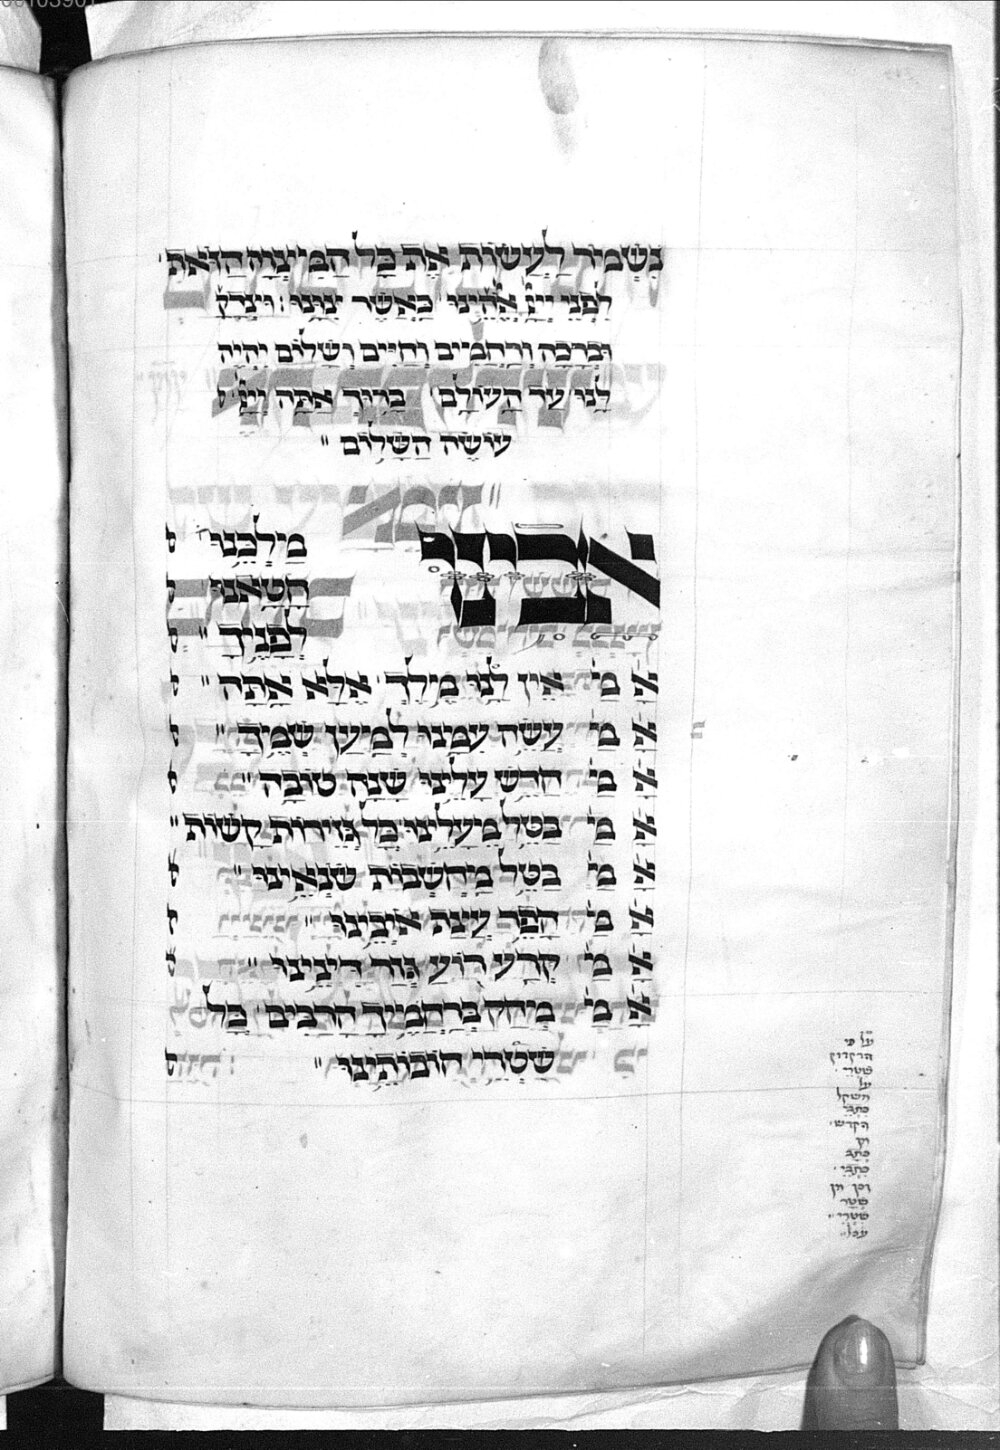 נִשְׁמוֹר לַעֲשׂוֹת אֶת כָּל הַמִּצְוָה הַזֹּאת
לִפְנֵי יְיָ אֱלֹהֵינוּ כַּאֲשֶׁר צִוָּנוּ׃ וּצְדָקָ׳
וּבְרָכָה וְרַחֲמִים וְחַיִּים וְשָׁלוֹם יִהְיֶה
לָנוּ עַד הָעוֹלָם׳ בָּרוּךְ אַתָּה יְיָ׳
עוֹשֶׂה הַשָּׁלוֹם ״
אבינו מַלְכֵּנוּ״
חָטָאנוּ
לְפָנֶיךָ ״
אָ מַ׳ אֵין לָנוּ מֶלֶךְ אֶלָּא אָתָּה ״
אָ מַ׳ עֲשֵׂה עִמָּנוּ לְמַעַן שְׁמֶךָ ״
אָ מַ׳ חַדֵּשׁ עָלֵינוּ שָׁנָה טוֹבָה ״
אָ מַ׳ בַּטֵּל מֵעָלֵינוּ כָּל גְּזֵירוֹת קָשׁוֹת ״
אָ מַ׳ בַּטֵּל מַחְשְׁבוֹת שֹׂנְאֵינוּ ״
אָ מַ׳ הָפֵר עֲצַת אוֹיְבֵינוּ ״
אָ מַ׳ קְרַע רוֹעַ גְּזַר דִּינֵינוּ ״
אָ מַ׳ מְחֹק בְּרַחֲמֶיךָ הָרַבִּים׳ כָּל
שִׁטְרֵי חוֹבוֹתֵינוּ ״
על פי
הדקדוק
שטרי׳
על
משקל
כתבי
הקדש׳
וק
כתב
כתבי׳
וכן מן
שטר
שטרי״
עכל״